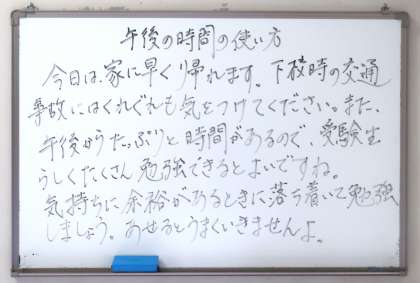 午後の時間の使い方
今日は、家に早くり帰れます。下校時の交通
事故にはくれぐれも気をつけてください。また、
午後からたっぷりと時間があるので、受験生
らしくたくさん勉強できるとよいですね。
気持ちに余裕があるときに落ち着いて勉強
しましょう。あせるとうまくいきませんよ。